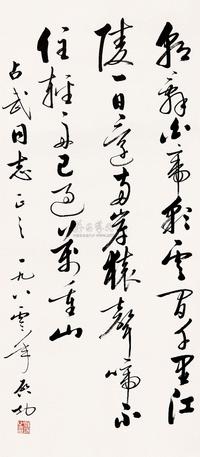 朝辞白帝彩云间千里江
陵一日还两岸猿聲啼不
住輕舟已过万重山
占武同志正之 一九八零年 启功